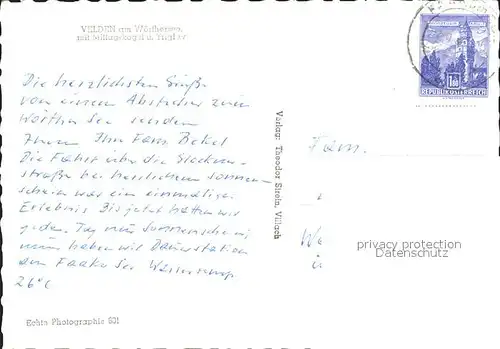 VELDEN am Wörthersee,
mit Mittagskogel u. Triglav
Die herzlichsten Grüße
von einem Abstecher zum
Wörther See senden
Ihnen Ihre Fam. Bekel
Die Fahrt über die Glockner-
straße bei herrlichem Sonnen-
schein war ein einmaliges
Erlebnis Bis jetzt hatten wir
jeden Tag nur Sonnenschein
nun haben wir Dauerstation
am Faaker See Wassertemp.
26°C
Echte Photographie 601
Verlag: Theodor Strein, Villach
1.80
REPUBLIK ÖSTERREICH
Fam.
privacy protection
Datenschutz